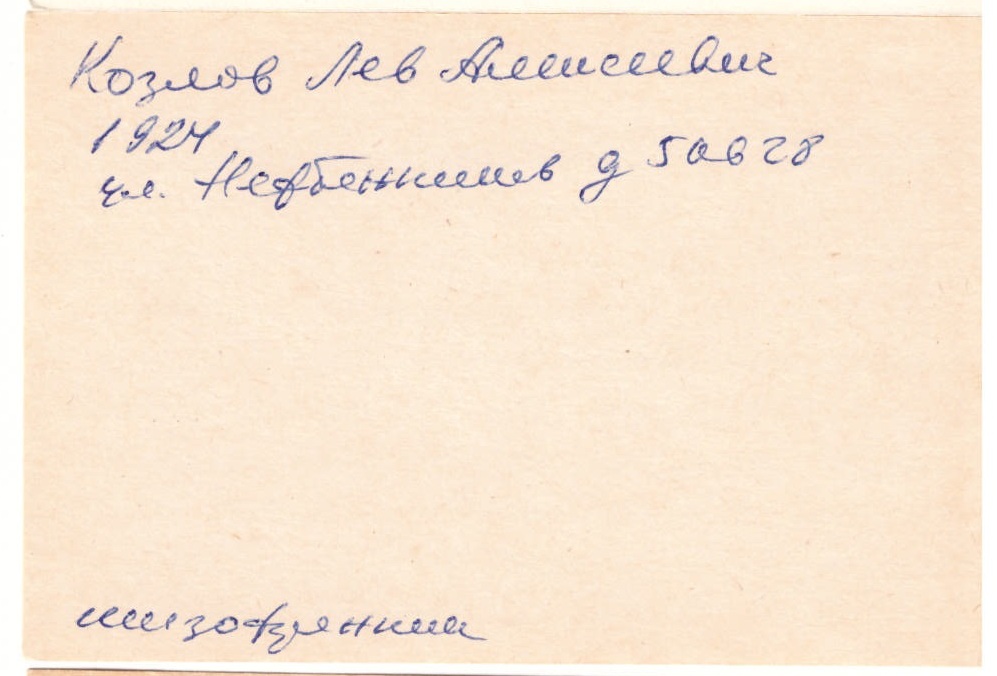 Козлов Лев Алексеевич
1924
ул. Нефтяников д 50в 28
шизофреник